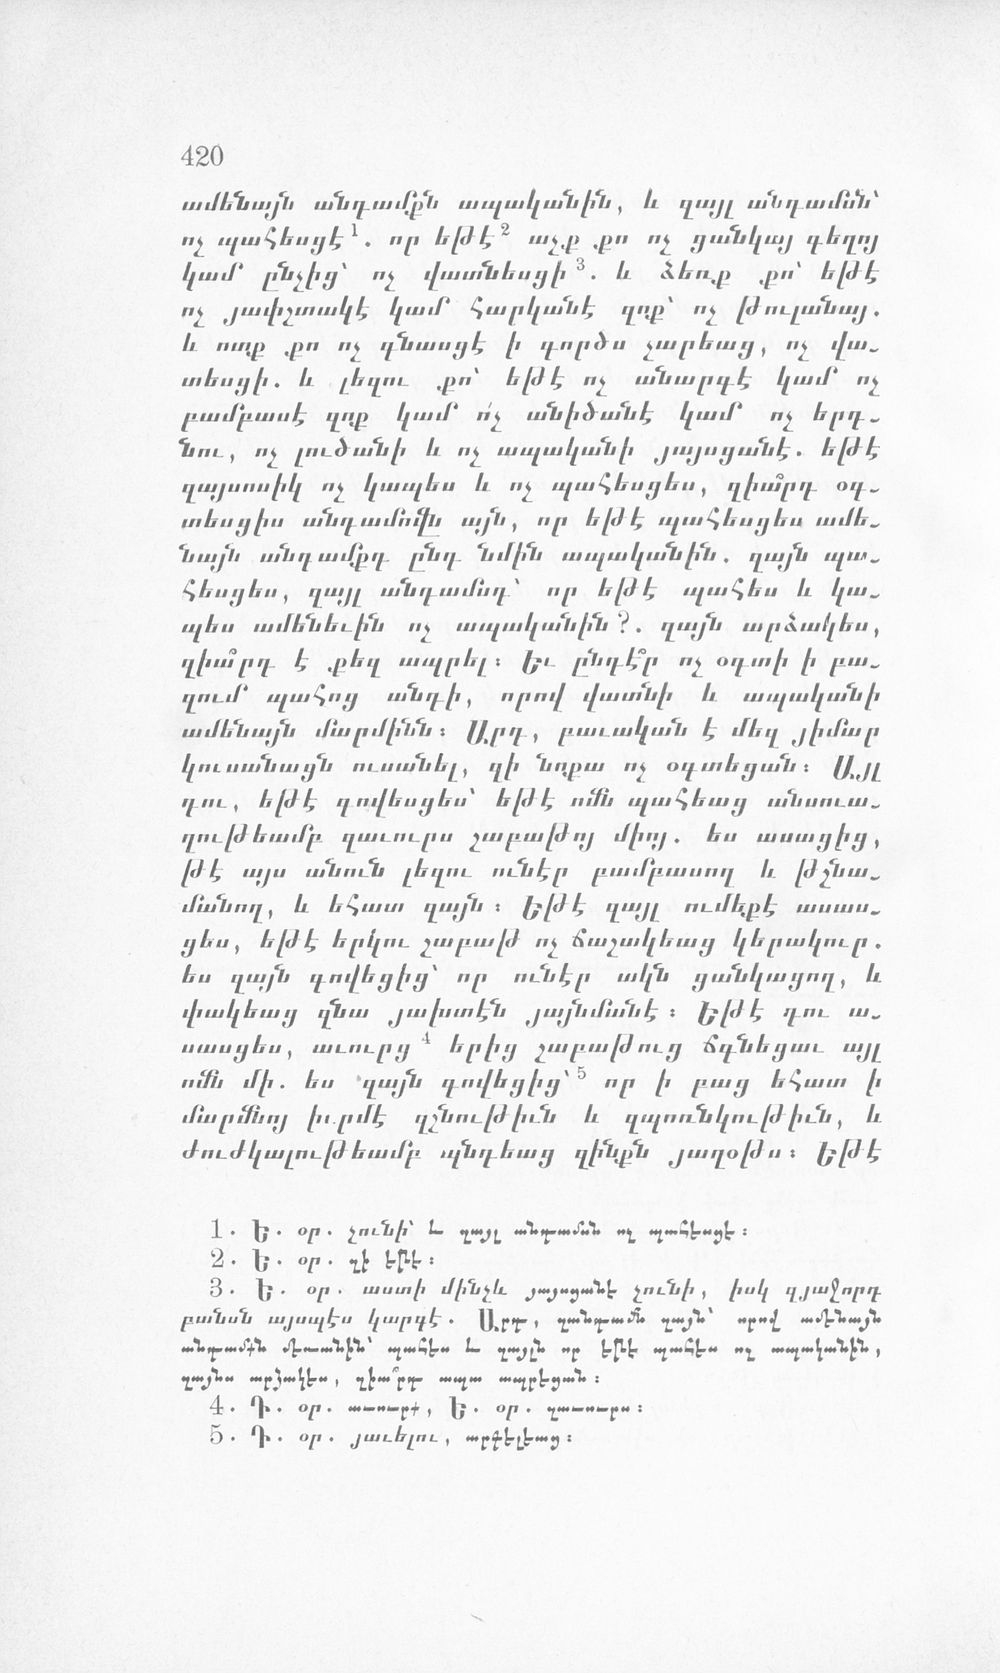 420
ամենայն անդամքն ապականին, և զայլ անդամսն՝
ոչ պահեսցէ1. որ եթէ2 աչք քո ոչ ցանկայ գեղոյ
կամ ընչից՝ ոչ վատնեսցի3. և ձեռք քո՝ եթէ
ոչ յափշտակէ կամ հարկանէ զոք՝ ոչ թուլանայ.
և ոտք քո ոչ գնասցէ ի գործս չարեաց, ոչ վա-
տեսցի. և լեզու քո՝ եթէ ոչ անարգէ կամ ոչ
բամբասէ զոք կամ ո՛չ անիծանէ կամ ոչ երդ-
նու, ոչ լուծանի և ոչ ապականի յայսցանէ. եթէ
զայսոսիկ ոչ կապես և ոչ պահեսցես, զիա՞րդ օգ-
տեսցիս անդամովն այն, որ եթէ պահեսցես ամե-
նայն անդամքդ ընդ նմին ապականին. զայն պա-
հեսցես, զայլ անդամսդ՝ որ եթէ պահես և կա-
պես ամենեւին ոչ ապականին?. զայն արձակես,
զիա՞րդ է քեզ ապրել։ Եւ ընդէ՞ր ոչ օգտի ի բա-
զում պահոց անդի, որով վատնի և ապականի
ամենայն մարմինն։ Արդ, բաւական է մեզ յիմար
կուսանացն ուսանել, զի նոքա ոչ օգտեցան։ Այլ
դու, եթէ գովեսցես՝ եթէ ոմն պահեաց անսուա-
ղութեամբ զաւուրս շաբաթոյ միոյ. ես ասացից,
թէ այս անուն լեզու ունէր բամբասող և թշնա-
մանող, և եհատ զայն։ Եթէ զայլ ումեքէ ասաս-
ցես, եթէ երկու շաբաթ ոչ ճաշակեաց կերակուր.
ես զայն գովեցից՝ որ ունէր ակն ցանկացող, և
փակեաց զնա յախտէն յայնմանէ։ Եթէ դու ա-
սասցես, աւուրց4 երից շաբաթուց ճգնեցաւ այլ
ոմն մի. ես զայն գովեցից՝5 որ ի բաց եհատ ի
մարմնոյ իւրմէ զշնութիւն և զպոռնկութիւն, և
ժուժկալութեամբ պնդեաց զինքն յաղօթս։ Եթէ
1. Ե. օր. չունի՝ և զայլ անդամսն ոչ պահեսցէ։
2. Ե. օր. զի եթէ։
3. Ե. օր. աստի մինչև յայսցանէ չունի, իսկ զյաջորդ
բանսն այսպէս կարգէ. Արդ, զանդամն զայն՝ որով ամենայն
անդամքն մեռանին՝ պահես և զայլն որ եթէ պահես ոչ ապականին,
զայնս արձակես, զիա՞րդ ապա ապրեցան։
4. Դ. օր. աւուրք, Ե. օր. զաւուրս։
5. Դ. օր. յաւելու, արգելեաց։